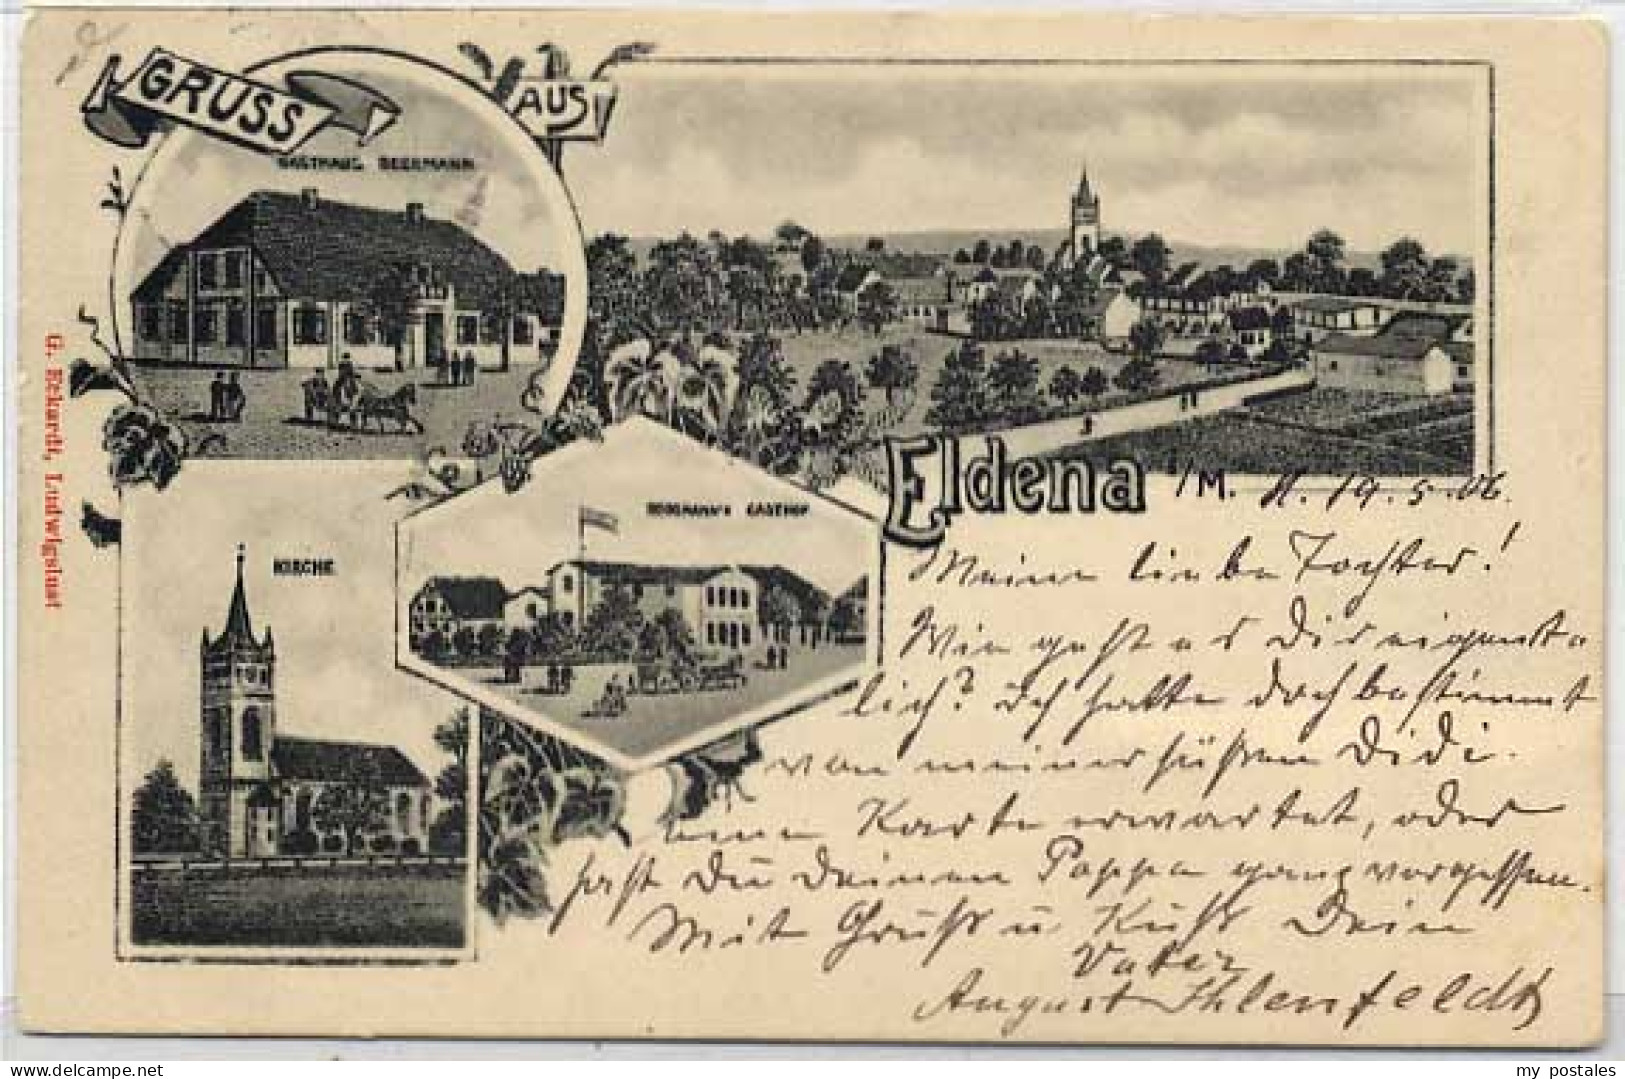 GRUSS AUS
GASTHAUS BEERMANN
Eldena i/M. d. 19.5.06.
GASTHOF
KIRCHE
G. Ekkardt, Ludwigslust
Meine liebe Tochter!
Wie geht es Dir eigent-
lich? Ich hatte doch bestimmt
von meiner süßen Didi
eine Karte erwartet, oder
hast Du Deinen Pappa ganz vergessen.
Mit Gruß u Kuß Dein
Vater
August Ihlenfeldt
my postales